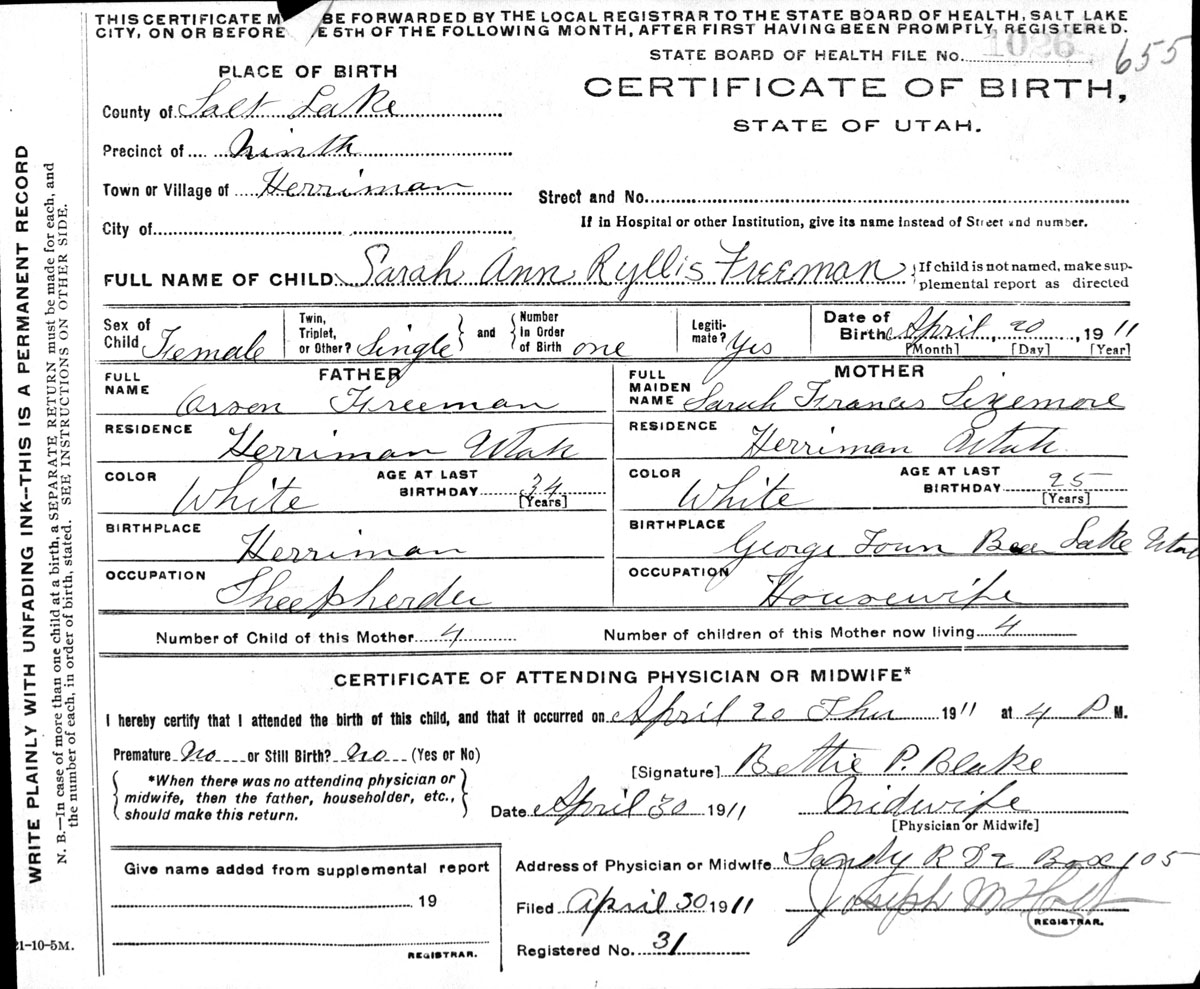 THIS CERTIFICATE M BE FORWARDED BY THE LOCAL REGISTRAR TO THE STATE BOARD OF HEALTH, SALT LAKE
CITY, ON OR BEFORE E 5TH OF THE FOLLOWING MONTH, AFTER FIRST HAVING BEEN PROMPTLY, REGISTERED.
STATE BOARD OF HEALTH FILE No. 1026 655
PLACE OF BIRTH
CERTIFICATE OF BIRTH,
STATE OF UTAH.
County of Salt Lake
Precinct of Ninth
Town or Village of Herriman
Street and No.
City of
If in Hospital or other Institution, give its name instead of Street and number.
FULL NAME OF CHILD Sarah Ann Ryllis Freeman {If child is not named, make sup-
plemental report as directed
Sex of Child Female
Twin, Triplet, or Other? Single } and { Number in Order of Birth one
Legiti-mate? Yes
Date of Birth April 20, 1911
[Month] [Day] [Year]
FATHER
FULL NAME Orson Freeman
RESIDENCE Herriman Utah
COLOR White AGE AT LAST BIRTHDAY 34
[Years]
BIRTHPLACE Herriman
OCCUPATION Sheepherder
MOTHER
FULL MAIDEN NAME Sarah Francis Sizemore
RESIDENCE Herriman Utah.
COLOR White AGE AT LAST BIRTHDAY 25
[Years]
BIRTHPLACE George Town Bear Lake Utah
OCCUPATION Housewife
Number of Child of this Mother 4 Number of children of this Mother now living 4
CERTIFICATE OF ATTENDING PHYSICIAN OR MIDWIFE*
I hereby certify that I attended the birth of this child, and that it occurred on April 20 Thu 1911 at 4 P M.
Premature No or Still Birth? No (Yes or No)
{ *When there was no attending physician or
midwife, then the father, householder, etc.,
should make this return. }
[Signature] Bettie P. Blake
Date April 30 1911 Midwife
[Physician or Midwife]
Give name added from supplemental report
19
REGISTRAR.
Address of Physician or Midwife Sandy R D 2 Box 105
Filed April 30 1911 Joseph M Holt
REGISTRAR.
Registered No. 31
WRITE PLAINLY WITH UNFADING INK--THIS IS A PERMANENT RECORD
N. B.—In case of more than one child at a birth, a SEPARATE RETURN must be made for each, and
the number of each, in order of birth, stated. SEE INSTRUCTIONS ON OTHER SIDE.
21-10-5M.